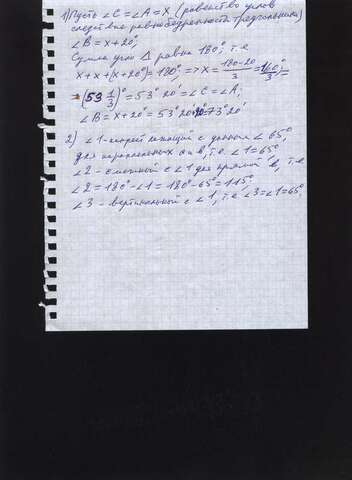 1) Пусть ∠C = ∠A = x (равенство углов
следствие равнобедренности треугольника)
∠B = x + 20°
Сумма углов Δ равна 180°, т.е
x + x + (x + 20°) = 180° => x = 180-20/3 = 160°/3 =
= (53 1/3)° = 53° 20' = ∠C = ∠A;
∠B = x + 20° = 53° 20' + 20° = 73° 20'
2) ∠1 - лежащий с данным ∠ 65°
для параллельных a и b, т.е ∠1 = 65°
∠2 - смежный с ∠1 для прямой b, т.е
∠2 = 180° - ∠1 = 180° - 65° = 115°
∠3 - вертикальный с ∠1, т.е ∠3 = ∠1 = 65°